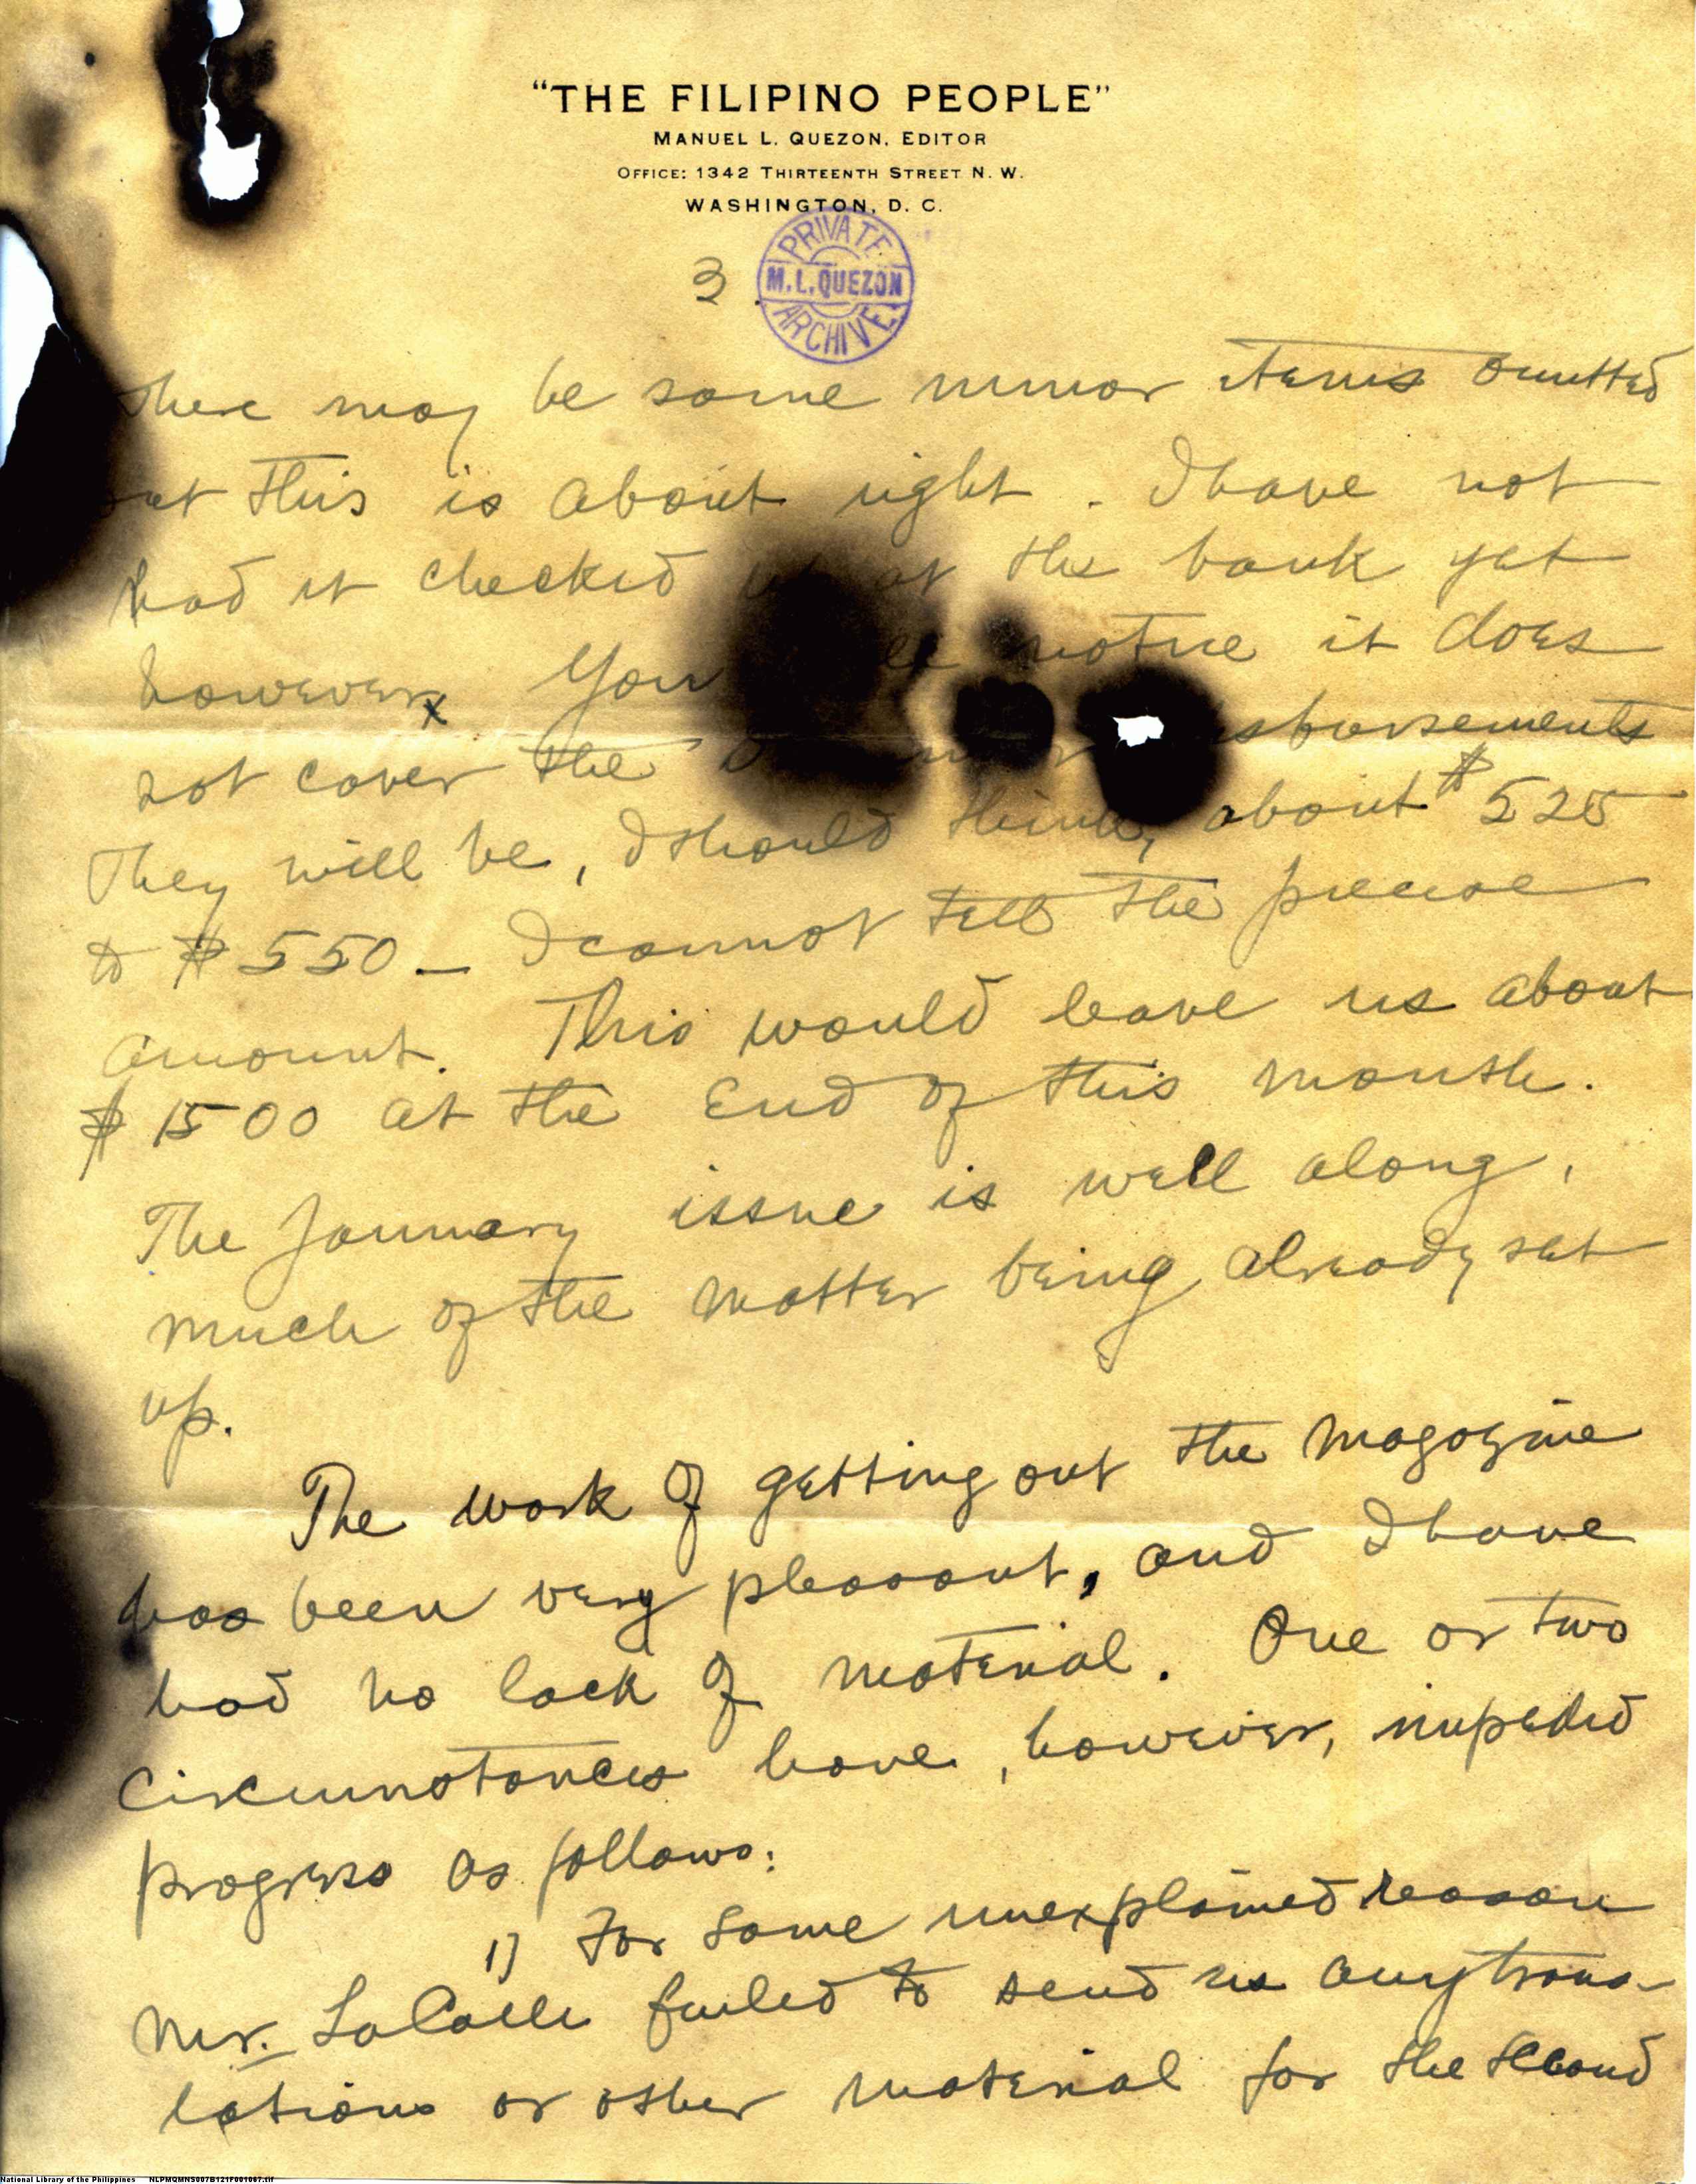 "THE FILIPINO PEOPLE"
MANUEL L. QUEZON, EDITOR
OFFICE: 1342 THIRTEENTH STREET N. W.
WASHINGTON, D. C.
PRIVATE
M. L. QUEZON
ARCHIVE
3.
There may be some minor items omitted
but this is about right. I have not
had it checked at the bank yet
however. You notice it does
not cover the disbursements
They will be, I should think, about $525
to $550 — I cannot tell the precise
amount. This would leave us about
$1500 at the End of this month.
The January issue is well along,
much of the matter being already set
up.
The work of getting out the magazine
has been very pleasant, and I have
had no lack of material. One or two
circumstances have, however, impeded
progress as follows:
1) For some unexplained reason
Mr. LaCalle failed to send us any trans-
lations or other material for the second
National Library of the Philippines NLPMQMNS007B121F001067.tif